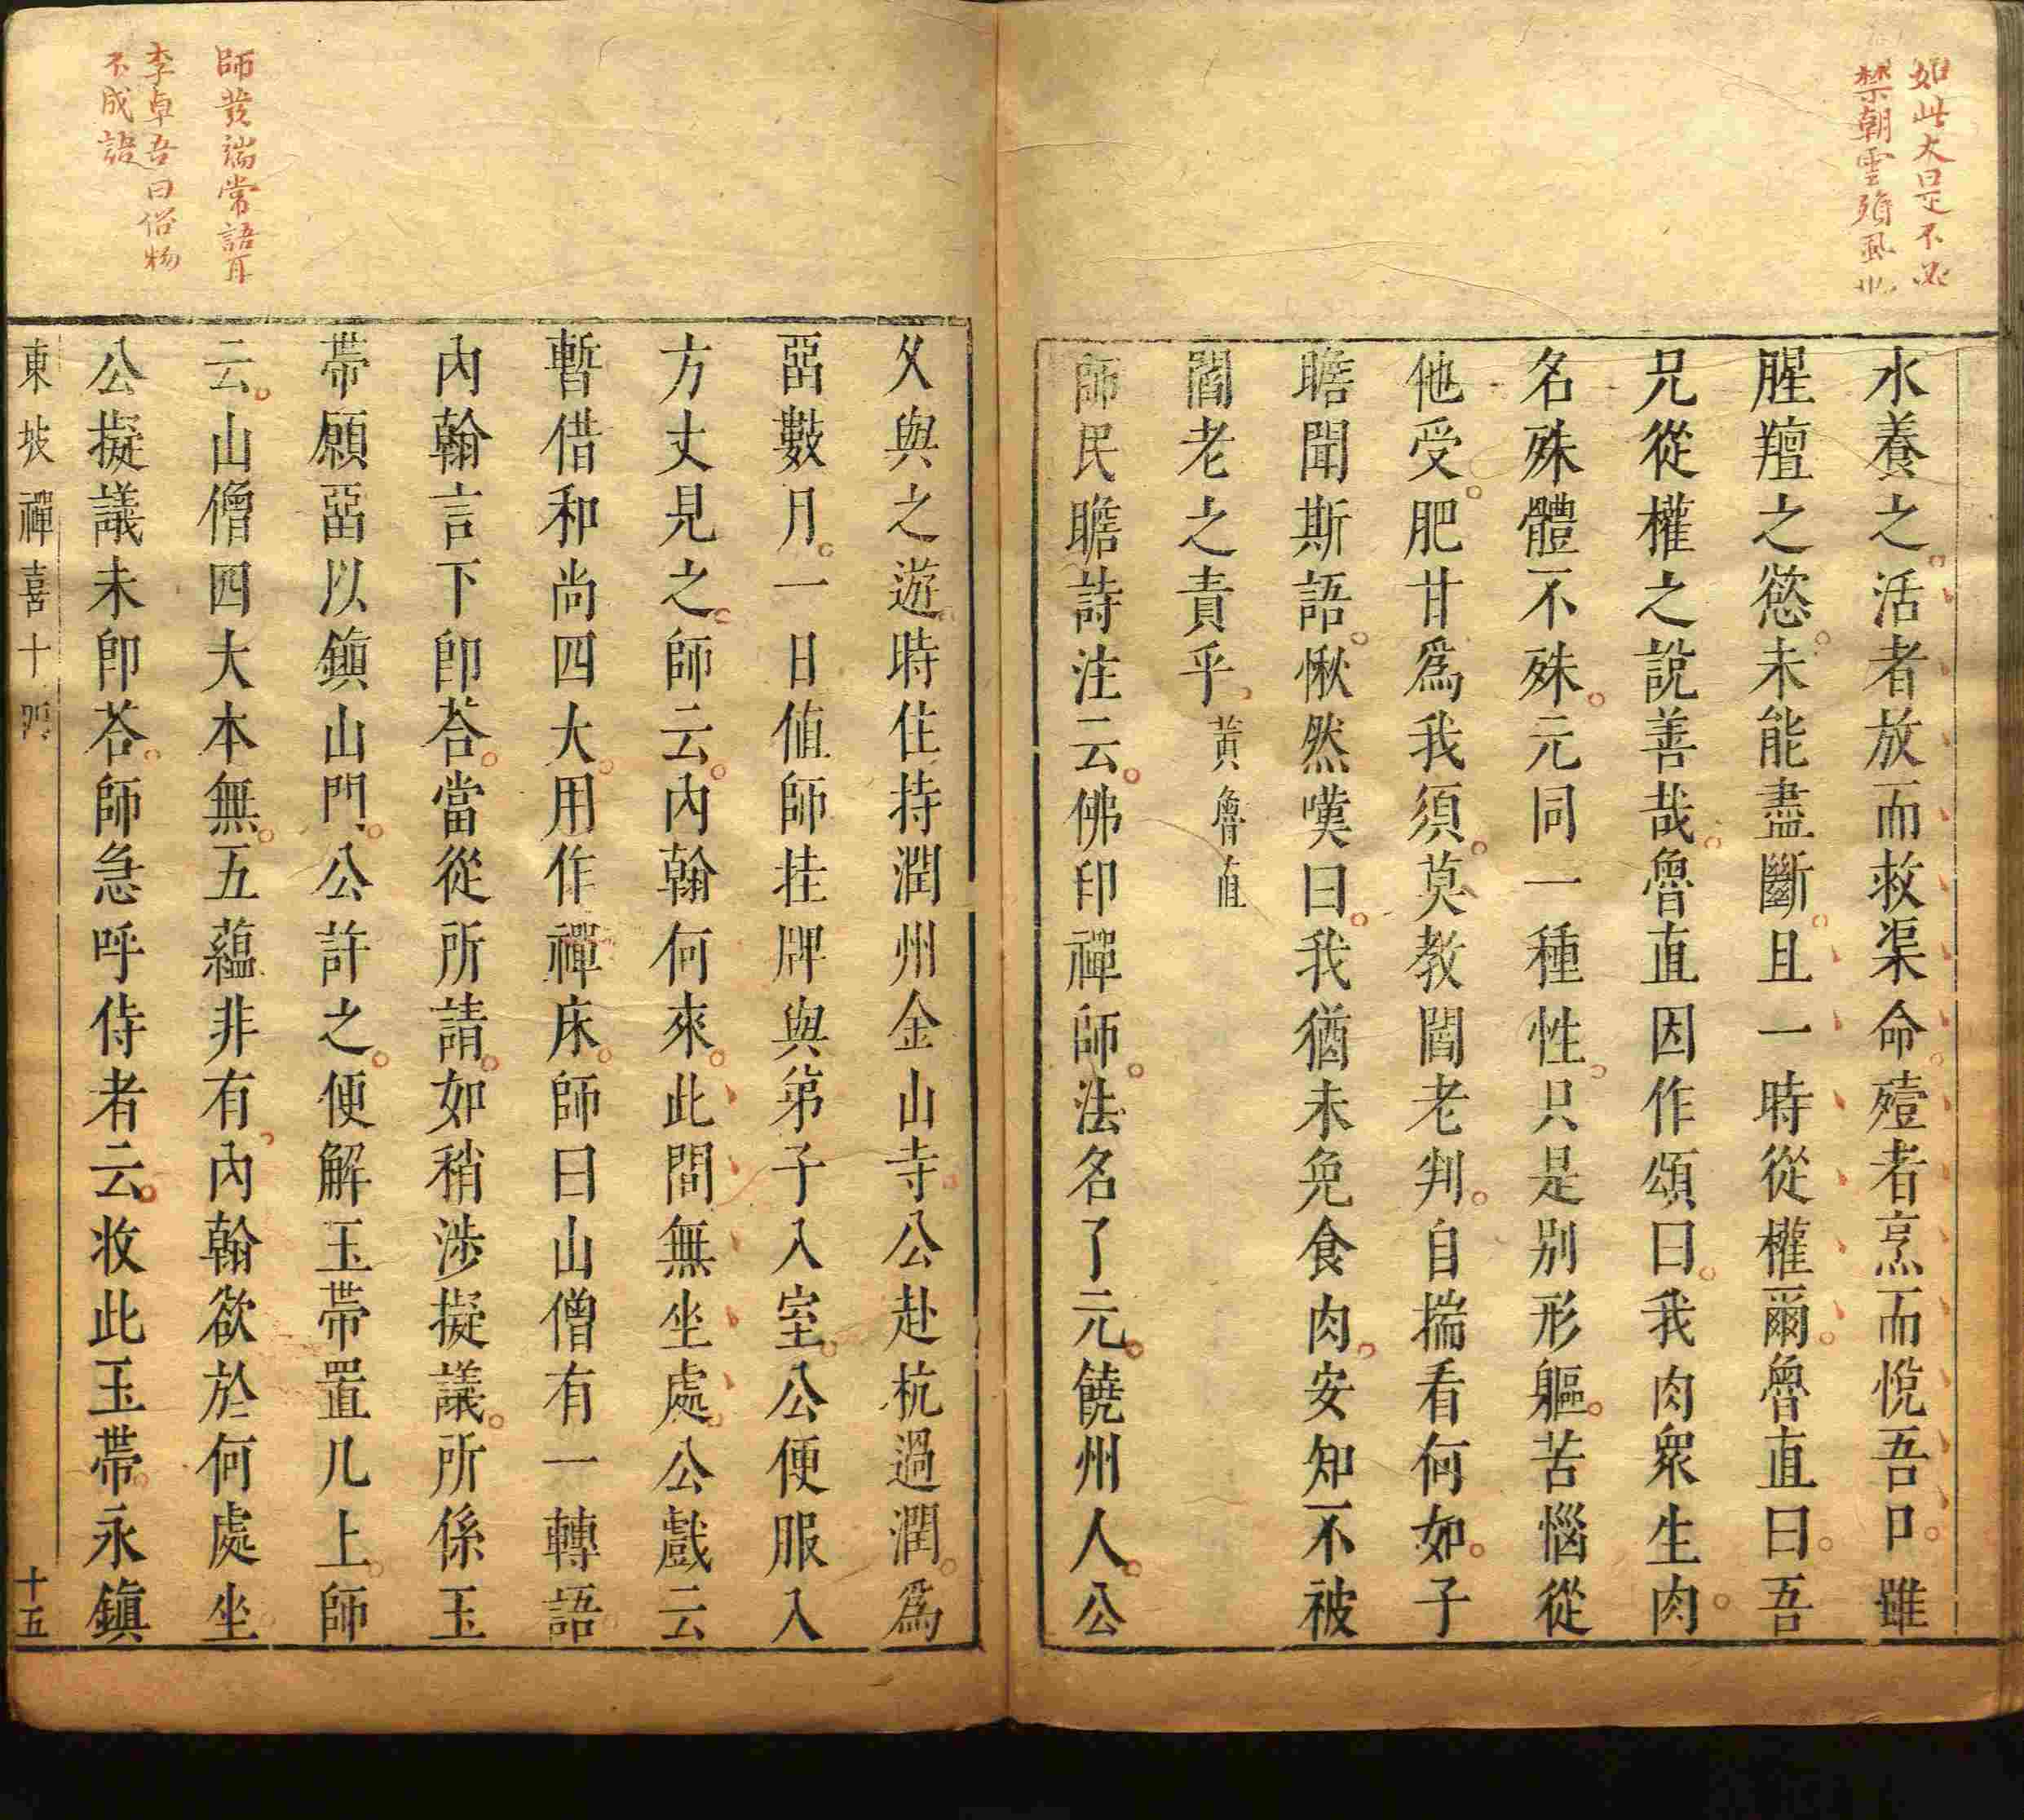 如此大是不必
禁朝雲殯
水養之活者放而救渠命殪者烹而悅吾口雖
腥羶之慾未能盡斷且一時從權爾魯直曰吾
兄從權之說善哉魯直因作頌曰我肉衆生肉
名殊體不殊元同一種性只是別形軀苦惱從
他受肥甘爲我須莫教閻老判自揣看何如子
瞻聞斯語愀然嘆曰我猶未免食肉安知不被
閻老之責乎黃魯直
師民瞻詩注云佛印禪師法名了元饒州人公
師發端常語耳
李卓吾曰俗物
不成語
久與之遊時住持潤州金山寺公赴杭過潤爲
畱數月一日值師挂牌與弟子入室公便服入
方丈見之師云內翰何來此間無坐處公戲云
暫借和尚四大用作禪床師曰山僧有一轉語
內翰言下卽荅當從所請如稍涉擬議所係玉
帶願畱以鎮山門公許之便解玉帶置几上師
云山僧四大本無五蘊非有內翰欲於何處坐
公擬議未卽荅師急呼侍者云收此玉帶永鎮
東坡禪喜十四 十五